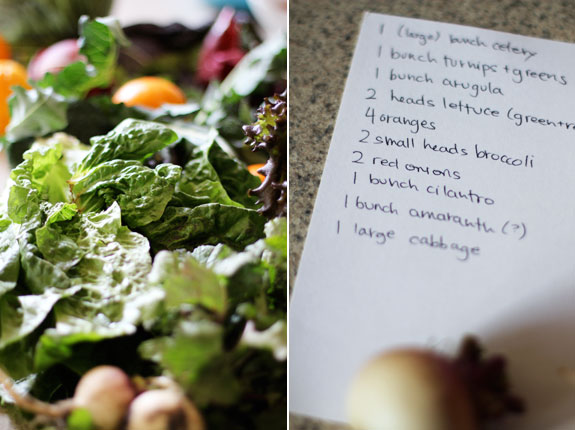 1 (large) bunch celery
1 bunch turnips + greens
1 bunch arugula
2 heads lettuce (green +
4 oranges
2 small heads broccoli
2 red onions
1 bunch cilantro
1 bunch amaranth (?)
1 large cabbage